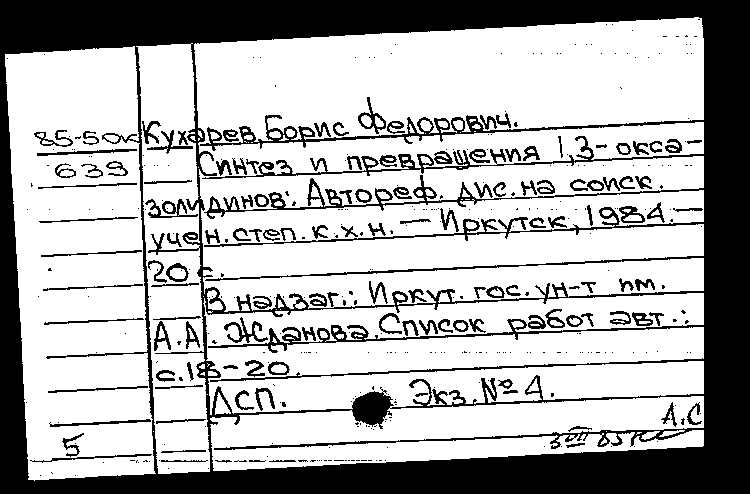 85-50к Кухарев, Борис Федорович.
639 Синтез и превращения 1,3-окса-
золидинов: Автореф. дис. на соиск.
учен. степ. к.х.н. — Иркутск, 1984. —
20 с.
В надзаг.: Иркут. гос. ун-т им.
А.А. Жданова. Список работ авт.:
с.18-20.
ДСП. Экз. № 4.
А.С
5